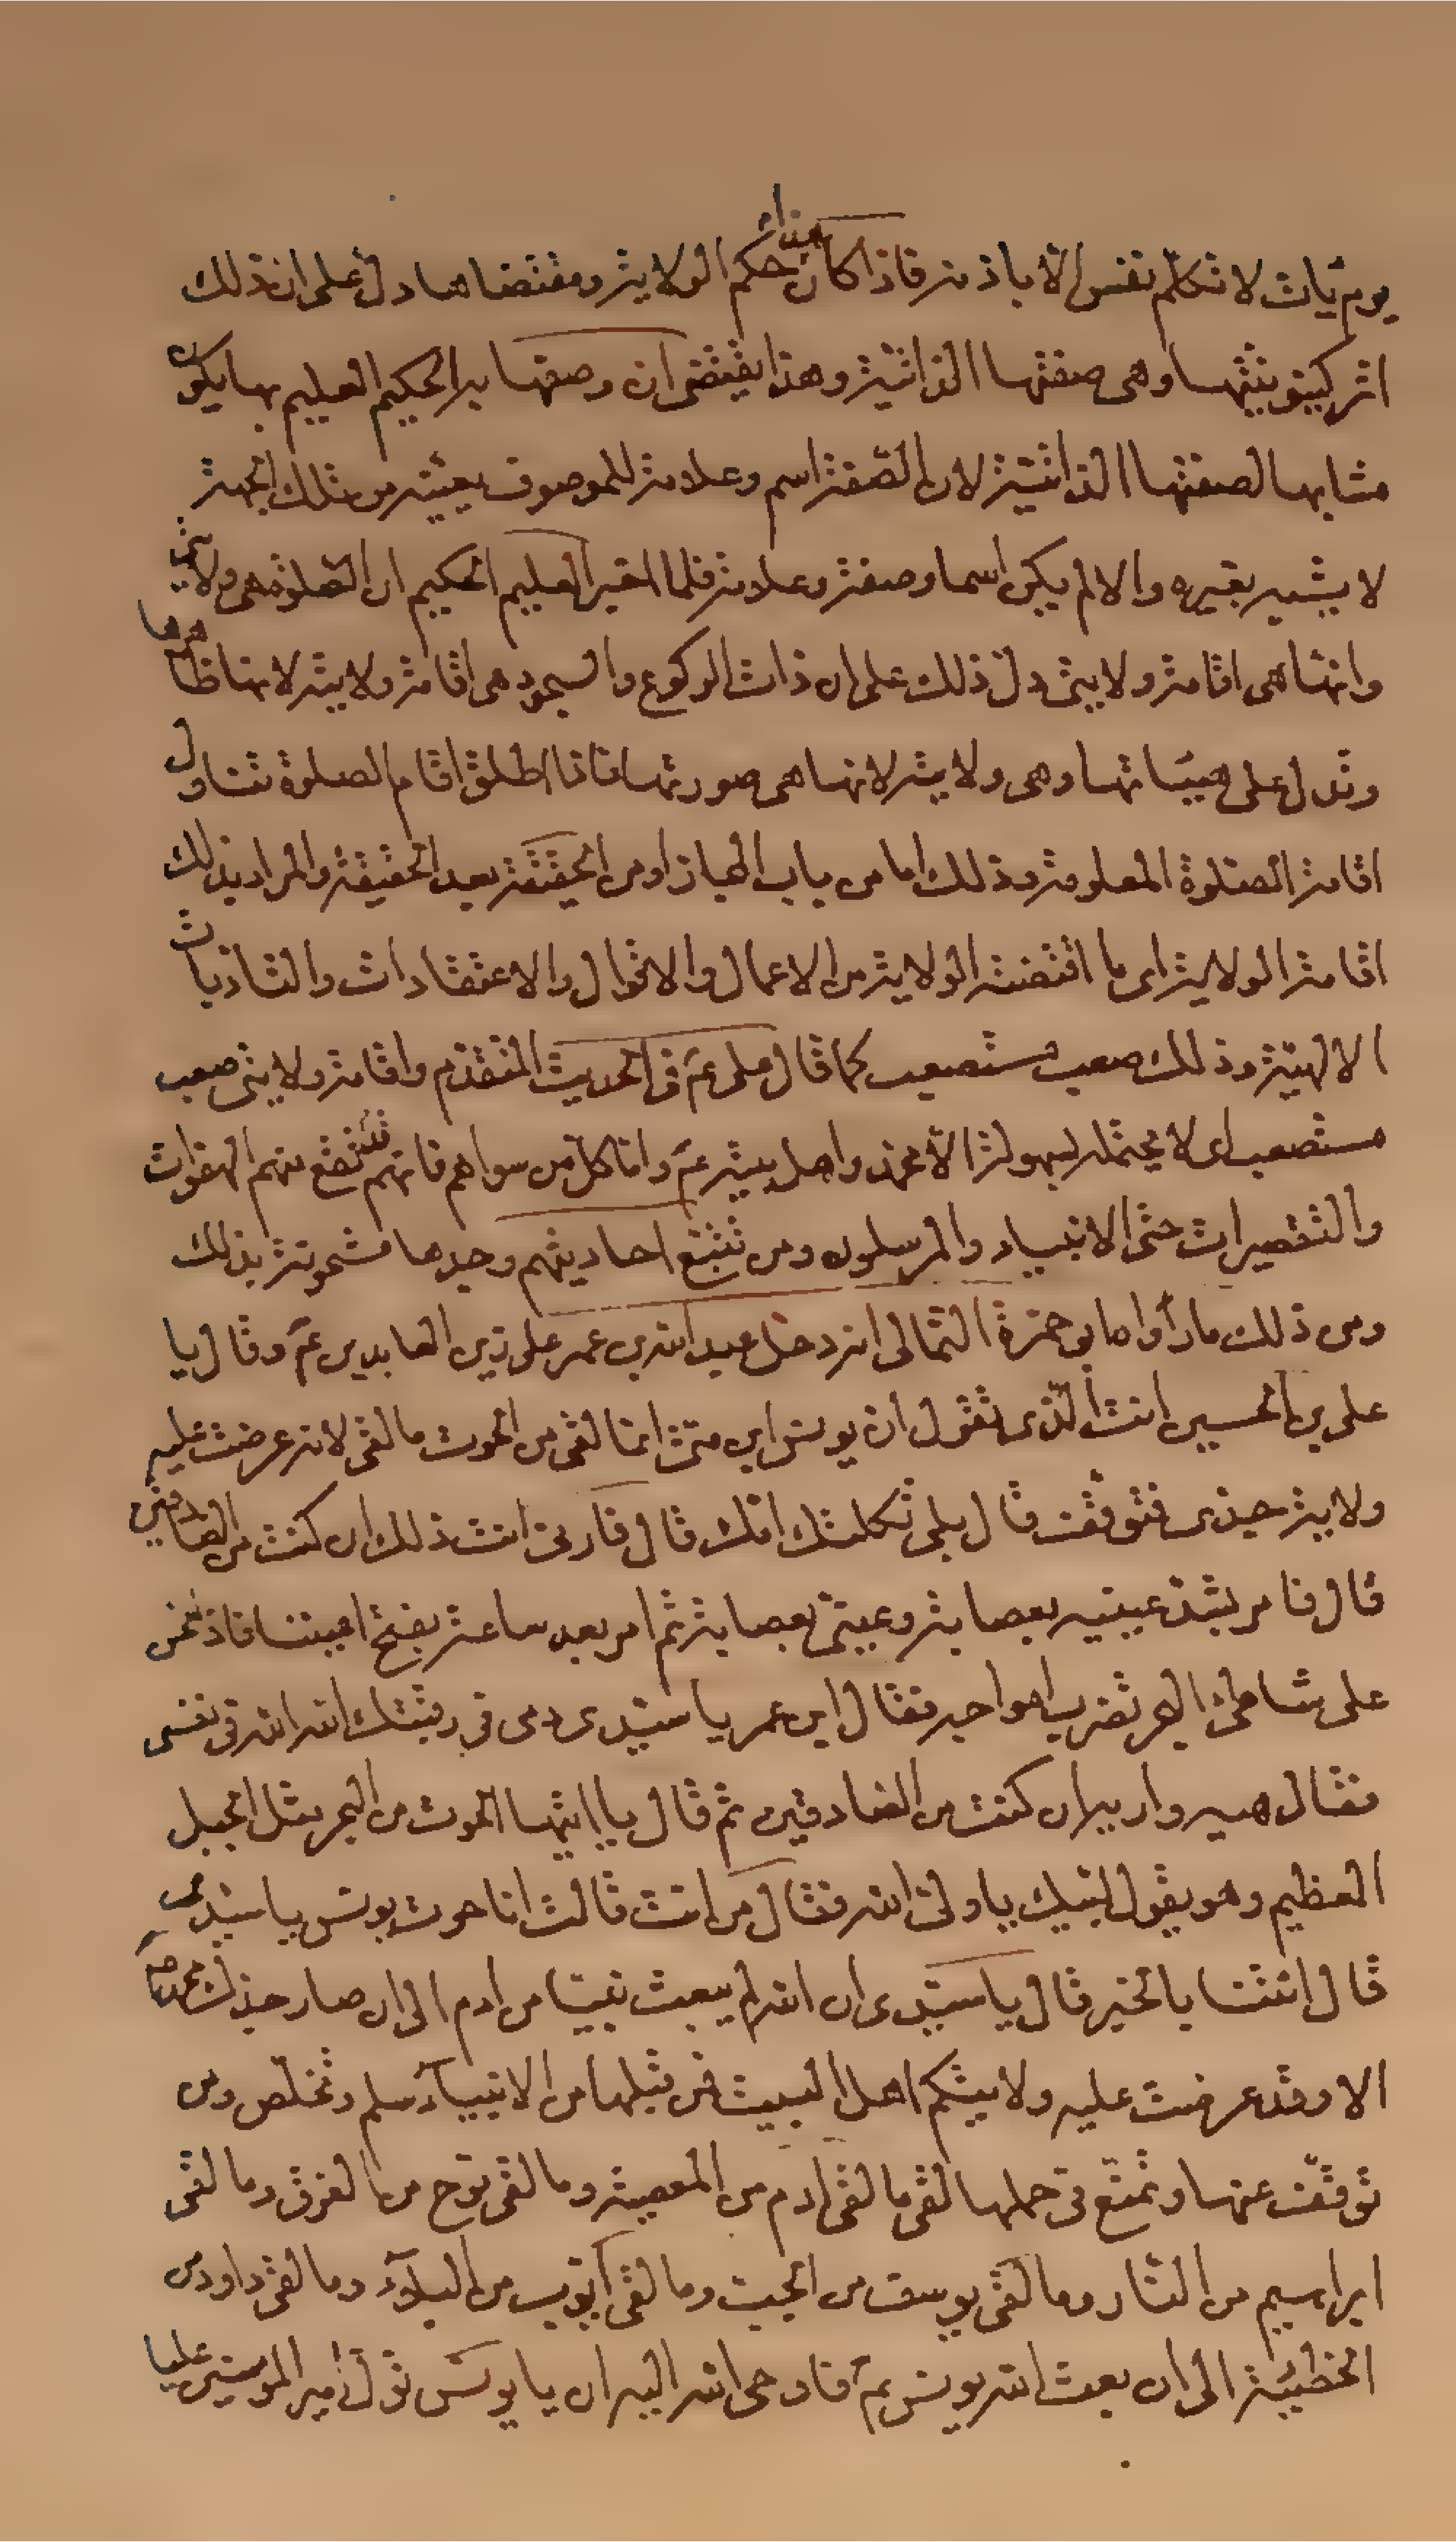 يوم يأت لا تكلّم نفس الّا باذنه فاذا كان هذا حكم الولاية ومقتضاها دلّ على ان ذلك
اثر كينونيتها وهى صفتها الذاتية وهذا يقتضى ان وصفها به الحكيم العليم بها يكون
مشابها لصفتها الذاتية لان الصّفة اسم وعلامة للموصوف يعيّنه من تلك الجهة
لا يشير بغيره والا لم يكن اسما وصفة وعلامة فلما اخبر العليم الحكيم ان الصّلوة هى ولايتى
وانها هى اقامة ولايتى دلّ ذلك على ان ذات الركوع والسجود هى اقامة ولايته لانها ظاهرها
وتدل على هيئاتها وهى ولايته لانها هى صورتها فاذا اطلق اقام الصلوة تناول
اقامة الصّلوة المعلومة وذلك اما من باب المجاز او من الحقيقة بعد الحقيقة والمراد بذلك
اقامة الولاية اى ما اقتضته الولاية من الاعمال والاقوال والاعتقادات والتاديبات
الالهيّة وذلك صعب مستصعب كما قال على عم فى الحديث المتقدّم واقامة ولايتى صعب
مستصعب اى لا يحتمله لسهولة الّا محمد واهل بيته عم وامّا كل من سواهم فانهم تقع منهم الهفوات
والتقصيرات حتّى الانبياء والمرسلون ومن تتبّع احاديثهم وجدها مشحونة بذلك
ومن ذلك ما رواه ابو حمزة الثمالى انه دخل عبد الله بن عمر على زين العابدين عم وقال يا
على بن الحسين انت الّذى تقول ان يونس ابن متّى انّما لقى من الحوت ما لقى لانه عرضت عليه
ولاية جدّى فتوقّف قال بلى ثكلتك امّك قال فارنى انت ذلك ان كنت من الصادقين
قال فامر بشدّ عينيه بعصابة وعينىّ بعصابة ثم امر بعد ساعة بفتح اعيننا فاذا نحن
على شاطئ البحر تضرب امواجه فقال ابن عمر يا سيّدى دمى فى رقبتك الله الله فى نفسى
فقال هيه واريه ان كنت من الصّادقين ثم قال يا ايّتها الحوت من البحر مثل الجبل
العظيم وهو يقول لبّيك يا ولىّ الله فقال من انت قالت انا حوت يونس يا سيّدى
قال انبئنا بالخبر قال يا سيّدى ان الله لم يبعث نبيّا من ادم الى ان صار جدّك محمد صم
الا وقد عرضت عليه ولايتكم اهل البيت فمن قبلها من الانبياء سلم وتخلّص ومن
توقّف عنها وتمنّع فى حملها لقى ما لقى ادم من المعصية وما لقى نوح من الغرق وما لقى
ابراهيم من النار وما لقى يوسف من الجبّ وما لقى ايّوب من البلاء وما لقى داود من
الخطيئة الى ان بعث الله يونس عم فاوحى الله اليه ان يا يونس تولّ امير المؤمنين عليا